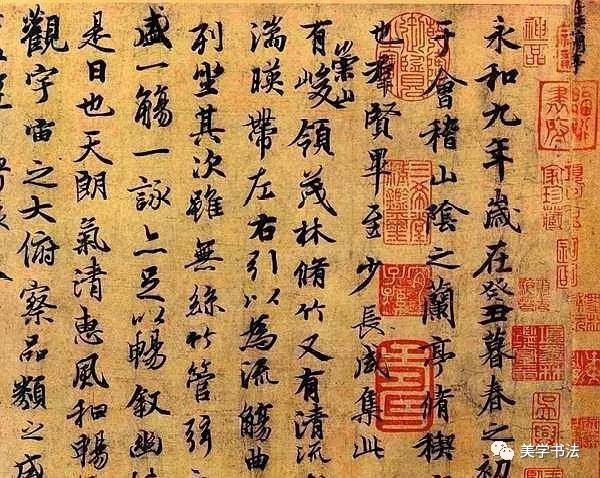 神品
永和九年歲在癸丑暮春之初
于會稽山陰之蘭亭脩稧
也羣賢畢至少長咸集此
有崇山峻領茂林脩竹又有清流
湍暎帶左右引以為流觴曲
列坐其次雖無絲竹管弦
盛一觴一詠亦足以暢敘幽
是日也天朗氣清惠風和暢
觀宇宙之大俯察品類之盛
三希堂
美学书法